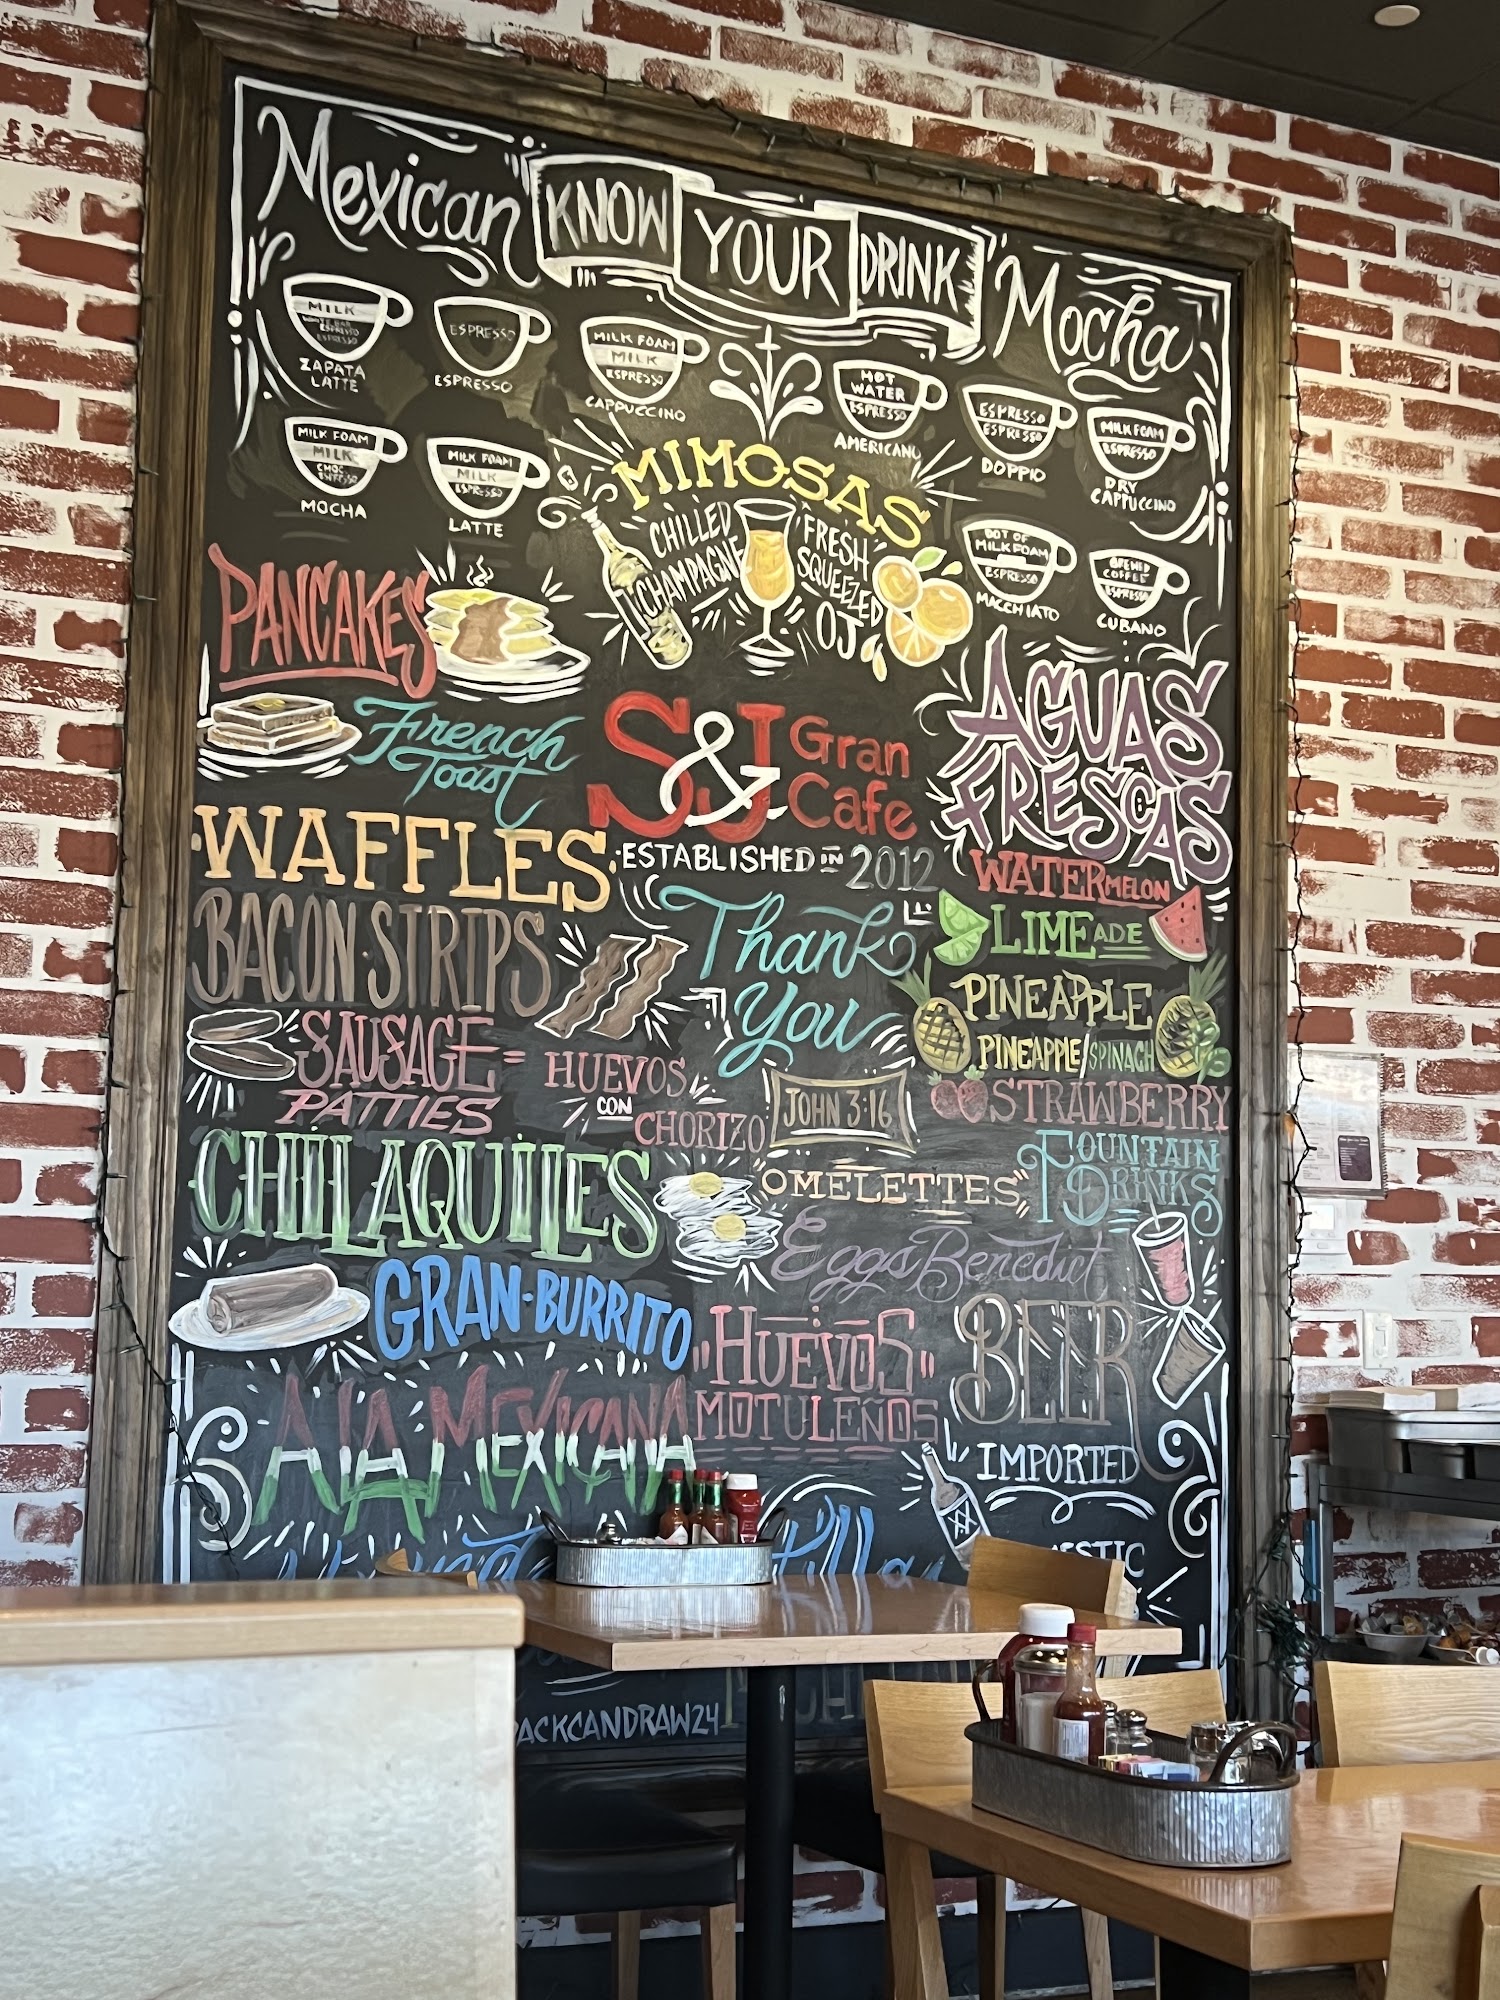 Mexican
KNOW YOUR DRINK
Mocha
MILK
ESPRESSO
ZAPATA
LATTE
ESPRESSO
ESPRESSO
MILK FOAM
MILK
ESPRESSO
CAPPUCCINO
HOT
WATER
ESPRESSO
AMERICANO
ESPRESSO
ESPRESSO
DOPPIO
MILK FOAM
ESPRESSO
DRY
CAPPUCCINO
MILK FOAM
MILK
CHOC.
ESPRESSO
MOCHA
MILK FOAM
MILK
ESPRESSO
LATTE
DOT OF
MILK FOAM
ESPRESSO
MACCHIATO
BREWED
COFFEE
ESPRESSO
CUBANO
MIMOSAS
CHILLED
CHAMPAGNE
FRESH
SQUEEZED
OJ
PANCAKES
French
Toast
WAFFLES
BACON STRIPS
SAUSAGE
PATTIES
S&J Gran
Cafe
ESTABLISHED IN 2012
Thank
You
HUEVOS
CON
CHORIZO
JOHN 3:16
AGUAS
FRESCAS
WATERMELON
LIMEADE
PINEAPPLE
PINEAPPLE/SPINACH
STRAWBERRY
FOUNTAIN
DRINKS
CHILAQUILES
OMELETTES
Eggs Benedict
GRAN-BURRITO
A LA MEXICANA
"HUEVOS"
MOTULEÑOS
BEER
IMPORTED
PACKCANDRAW24